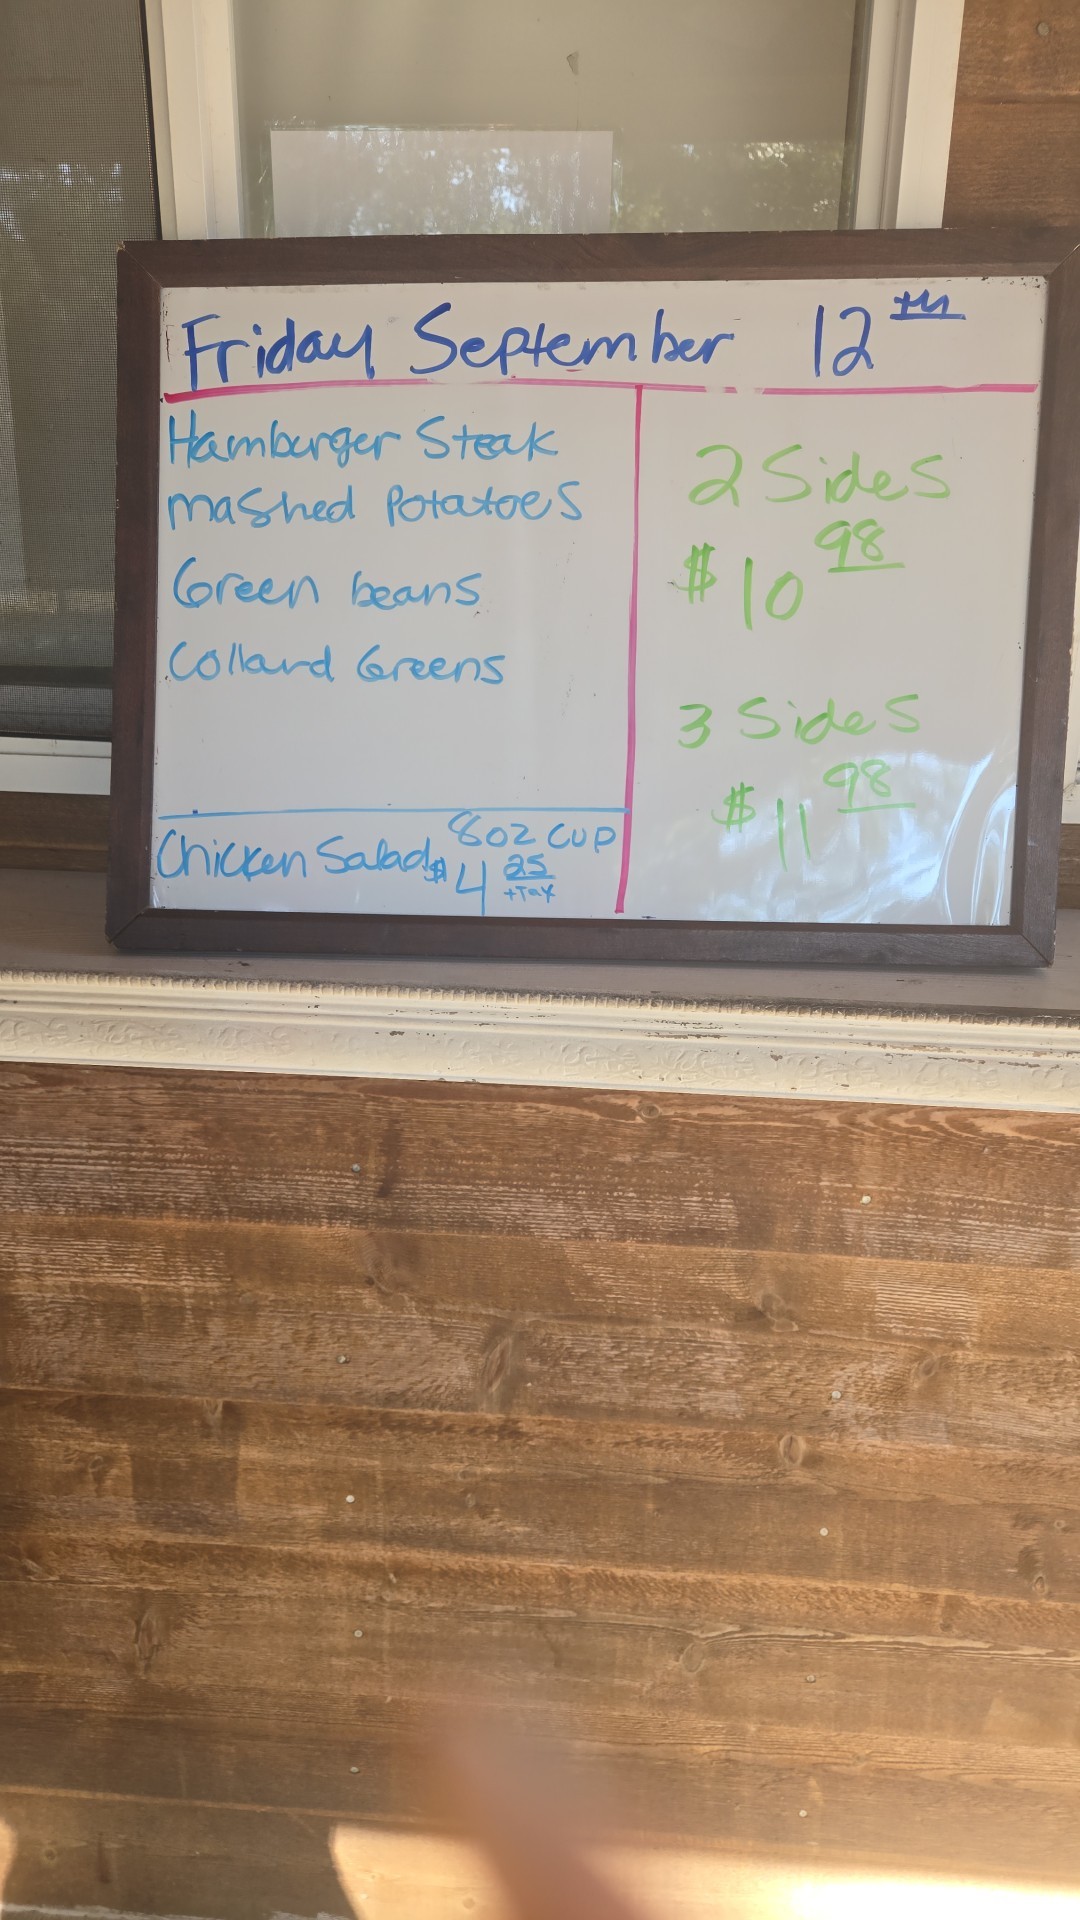 Friday September 12th
Hamburger Steak
mashed Potatoes
Green beans
Collard Greens
Chicken Salad 8oz CUP
$4 25
+Tax
2 Sides
$10 98
3 Sides
$11 98